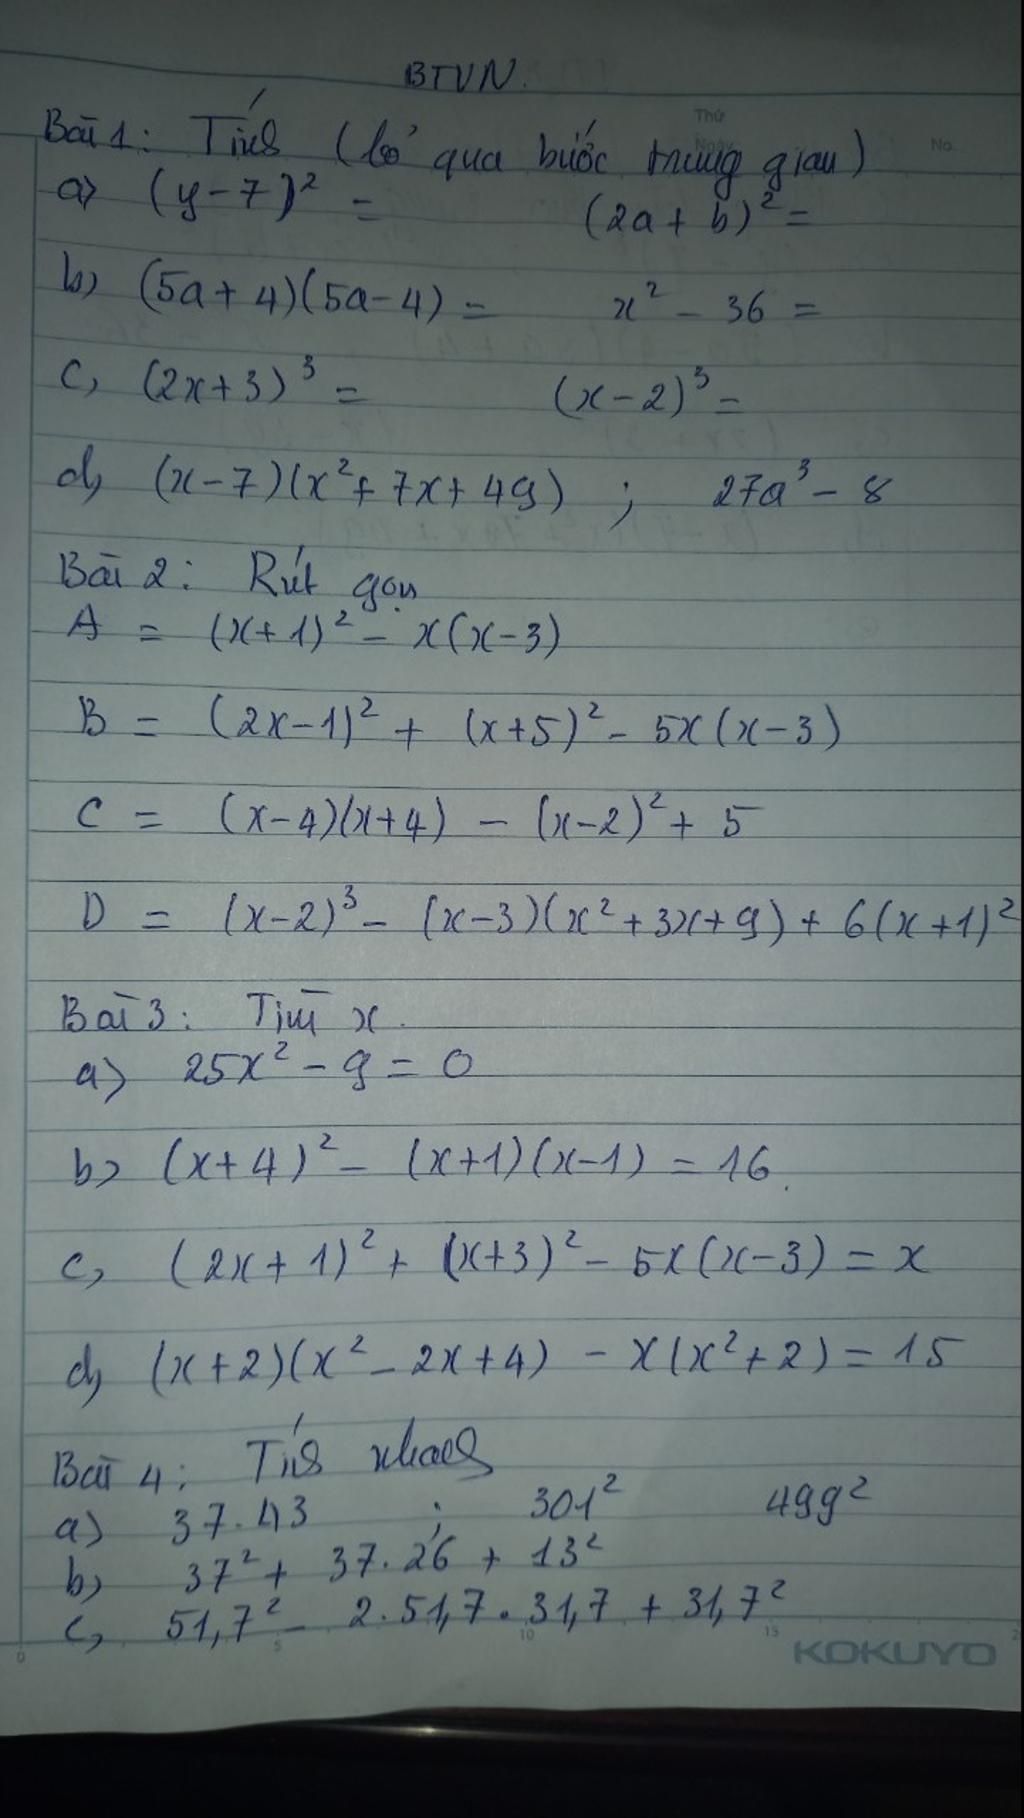 BTVN.
Thứ
Ngày
No.
Bài 1: Tính (bỏ qua bước trung gian)
a) (y-7)² = (2a + b)² =
b) (5a+4)(5a-4) = x² - 36 =
c, (2x+3)³ = (x-2)³ =
d, (x-7)(x²+7x+49) ; 27a³ - 8
Bài 2: Rút gọn
A = (x+1)² - x(x-3)
B = (2x-1)² + (x+5)² - 5x(x-3)
C = (x-4)(x+4) - (x-2)² + 5
D = (x-2)³ - (x-3)(x²+3x+9) + 6(x+1)²
Bài 3: Tìm x.
a) 25x² - 9 = 0
b) (x+4)² - (x+1)(x-1) = 16.
c, (2x+1)² + (x+3)² - 5x(x-3) = x
d, (x+2)(x²-2x+4) - x(x²+2) = 15
Bài 4: Tính nhanh
a) 37.43 ; 301² 499²
b) 37² + 37.26 + 13²
c, 51,7² - 2.51,7.31,7 + 31,7²
0 5 10 15 2
KOKUYO